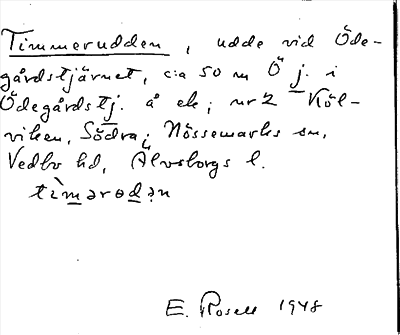 Timmerudden, udde vid Öde-
gårdstjärnet, c:a 50 m Ö j. i
Ödegårdstj. å ek; nr 2 Köl-
viken, Södra; Nössemarks sn,
Vedbo hd, Älvsborgs l.
tìmərɵdən
E. Rosell 1948